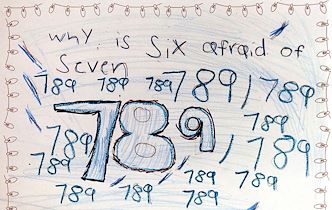 why is six afraid of
seven
789 789 789 789, 789
789
789 789, 789
789 789
789 789 789
789